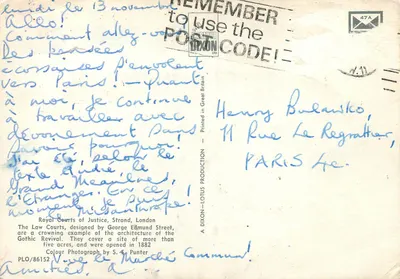 Lundi le 13 novembre
Allo!
Comment allez-vous
Des pensées
écossaises s'envolent
vers Paris! Quant
à moi, je continue
à travailler avec
dévouement sans
savoir pourquoi.
J'ai été, selon le
Grand Meaulnes,
l'Étranger. En ce
moment je suis
misanthrope!
Vive le Marché Commun!
Amitiés à
REMEMBER
to use the
POST CODE!
DIXON
47A
Henry Bulawko,
11 Rue Le Regrattier,
PARIS 4e.
A DIXON-LOTUS PRODUCTION — Printed in Great Britain
Royal Courts of Justice, Strand, London
The Law Courts, designed by George Edmund Street,
are a crowning example of the architecture of the
Gothic Revival. They cover a site of more than
five acres, and were opened in 1882
PLO/86152 Colour Photograph by S. E. Porter